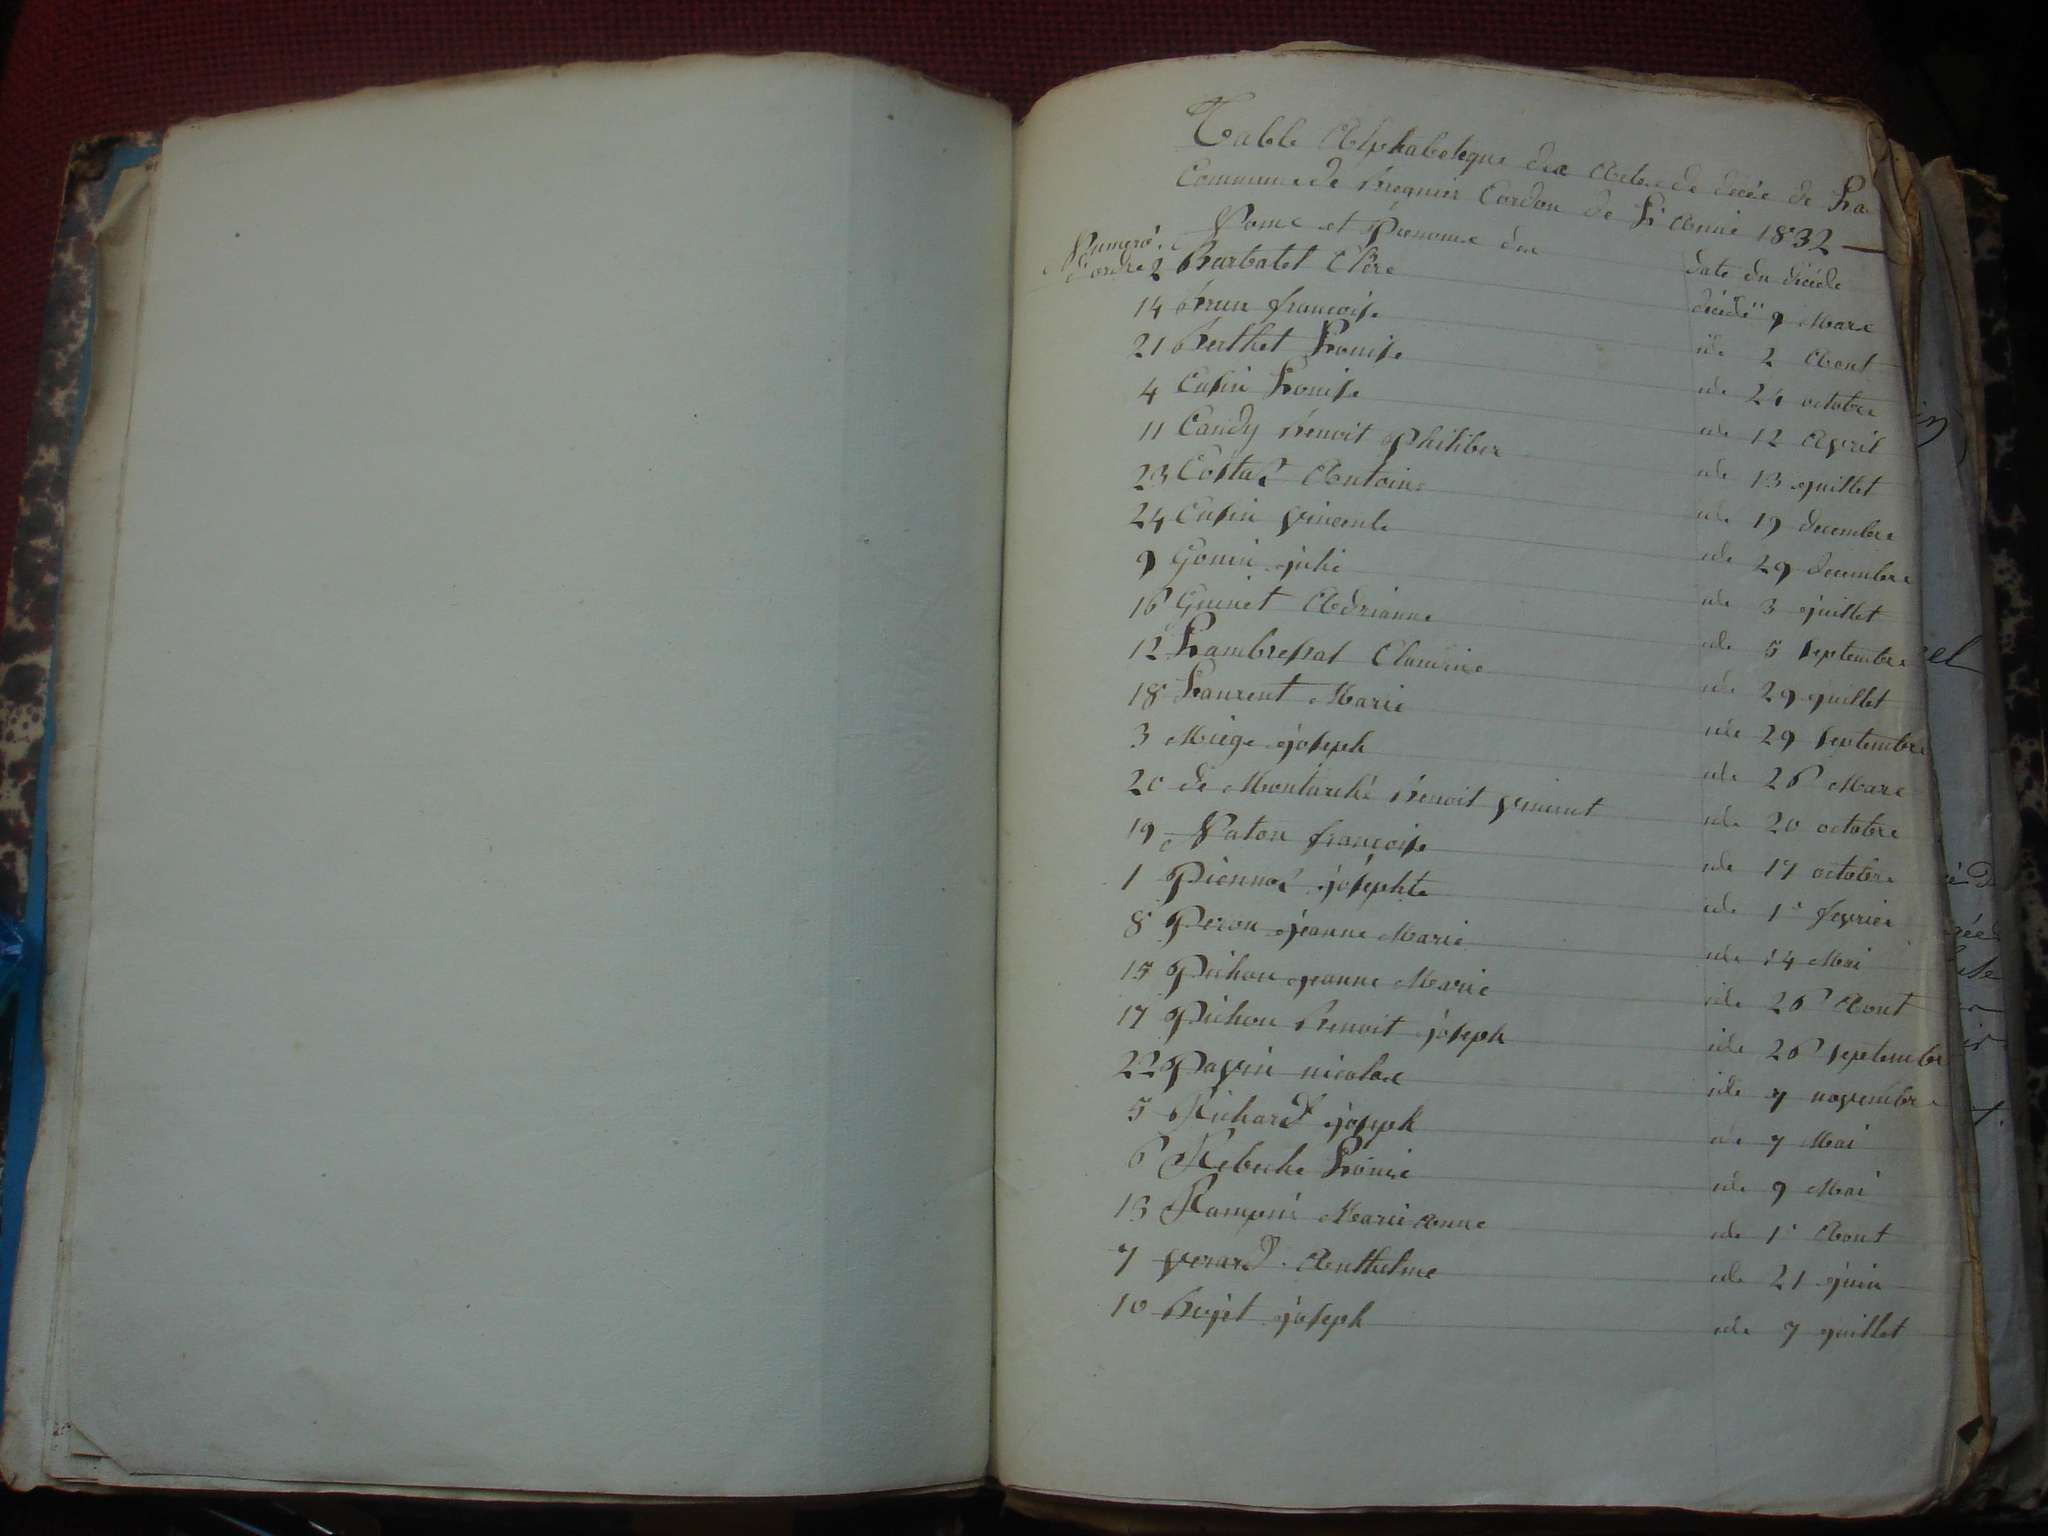 Table Alphabetique des Actes de décés de La
Commune de Bregnier Cordon de L'Année 1832
Numero d'ordre Noms et Prenoms des date du décéde
2 Barbatel Clere décédé 9 Mars
14 Brun françoise ide 2 Aout
21 Berthet Louise ide 24 octobre
4 Cusin Louise ide 12 Avril
11 Candy Benoit Philiber ide 13 juillet
23 Costaz Antoine ide 19 decembre
24 Cusin Vincent ide 29 decembre
9 Gonin julie ide 3 juillet
16 Guinet Adrianne ide 5 septembre
12 Lambressat Claudine ide 29 juillet
18 Laurent Marie ide 29 septembre
3 Miege joseph ide 26 Mars
20 de Montarché Benoit Vincent ide 20 octobre
19 Naton françoise ide 17 octobre
1 Piennoz josephte ide 1r fevrier
8 Peron jeanne Marie ide 14 Mai
15 Pichon jeanne Marie ide 26 Aout
17 Pichon Benoit joseph ide 26 septembre
22 Pavin nicolas ide 7 novembre
5 Richard joseph ide 7 Mai
6 Rebuche Louise ide 9 Mai
13 Rampin Marie Anne ide 1r Aout
7 Verard Anthelme ide 21 juin
10 Bojet joseph ide 7 juillet